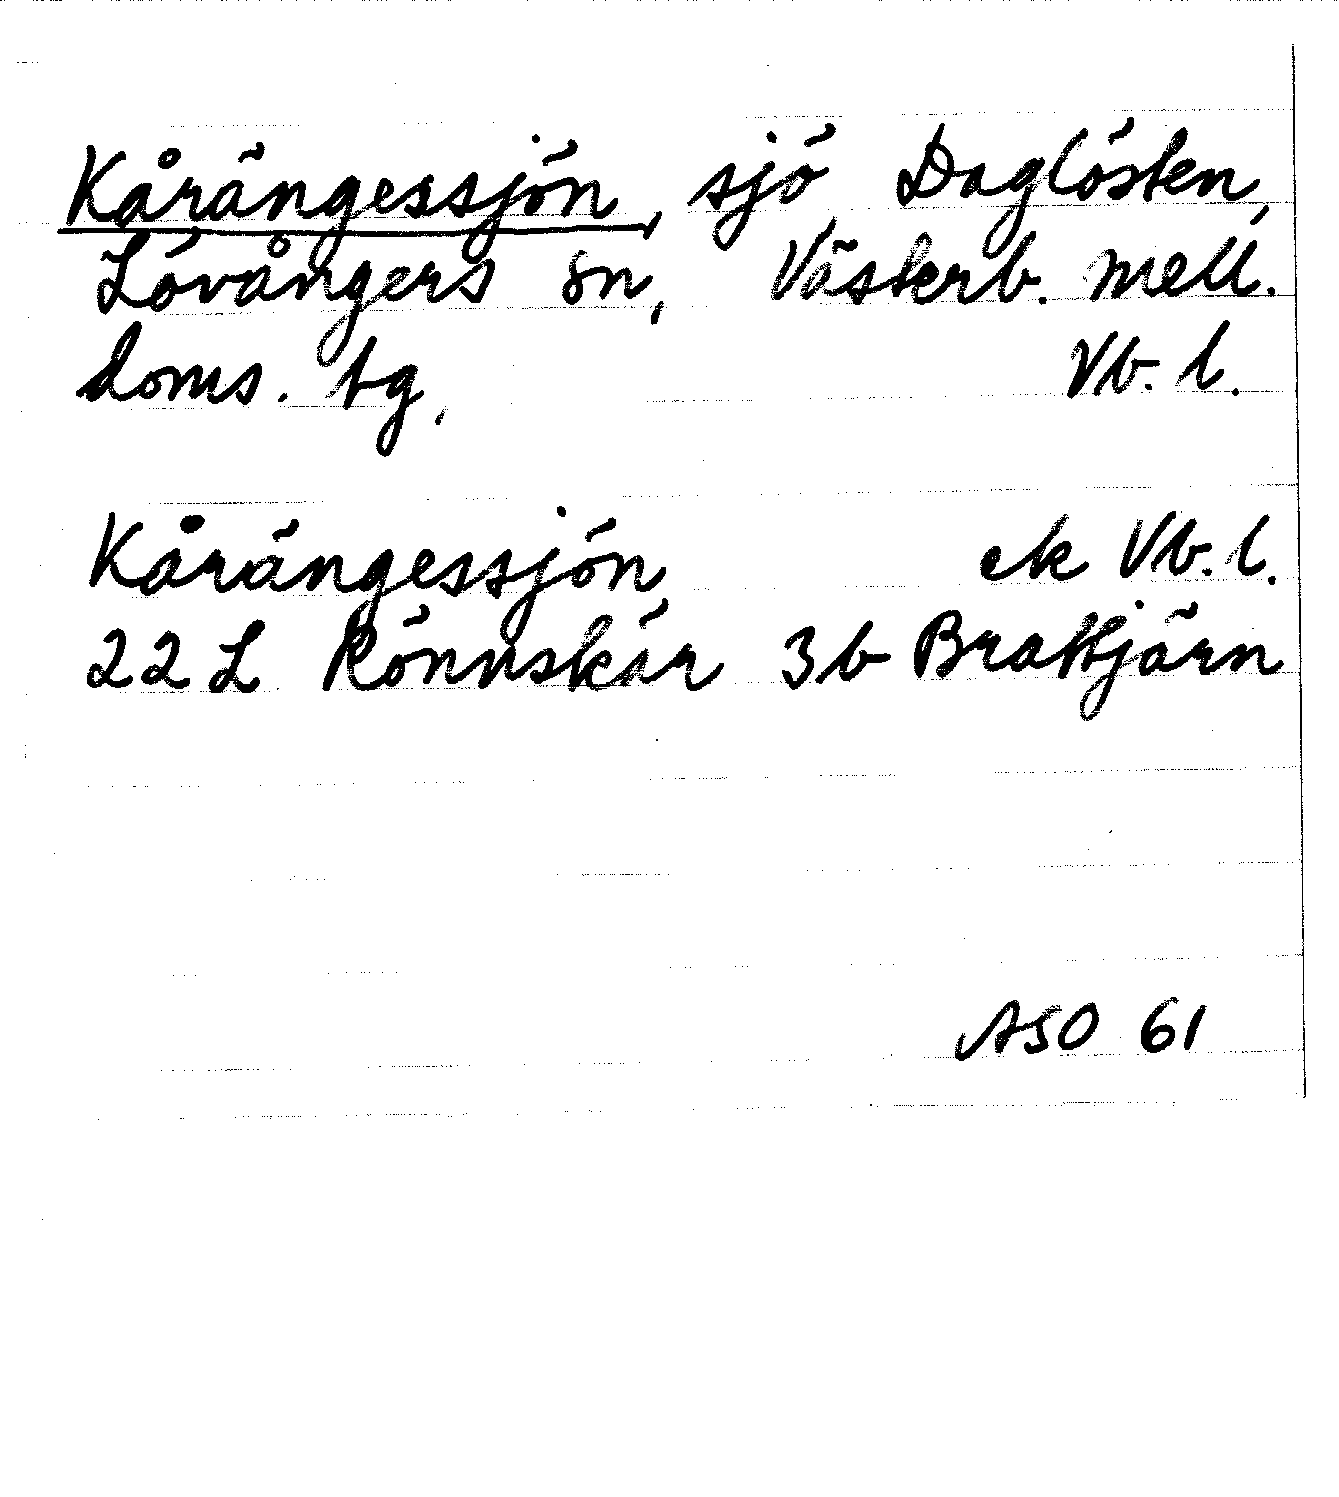 Kårängessjön, sjö, Daglösten,
Lövångers sn, Västerb. mell.
doms. tg, Vb. l.
Kårängessjön ek Vb. l.
22 L Rönnskär 3b Brattjärn
ASO 61